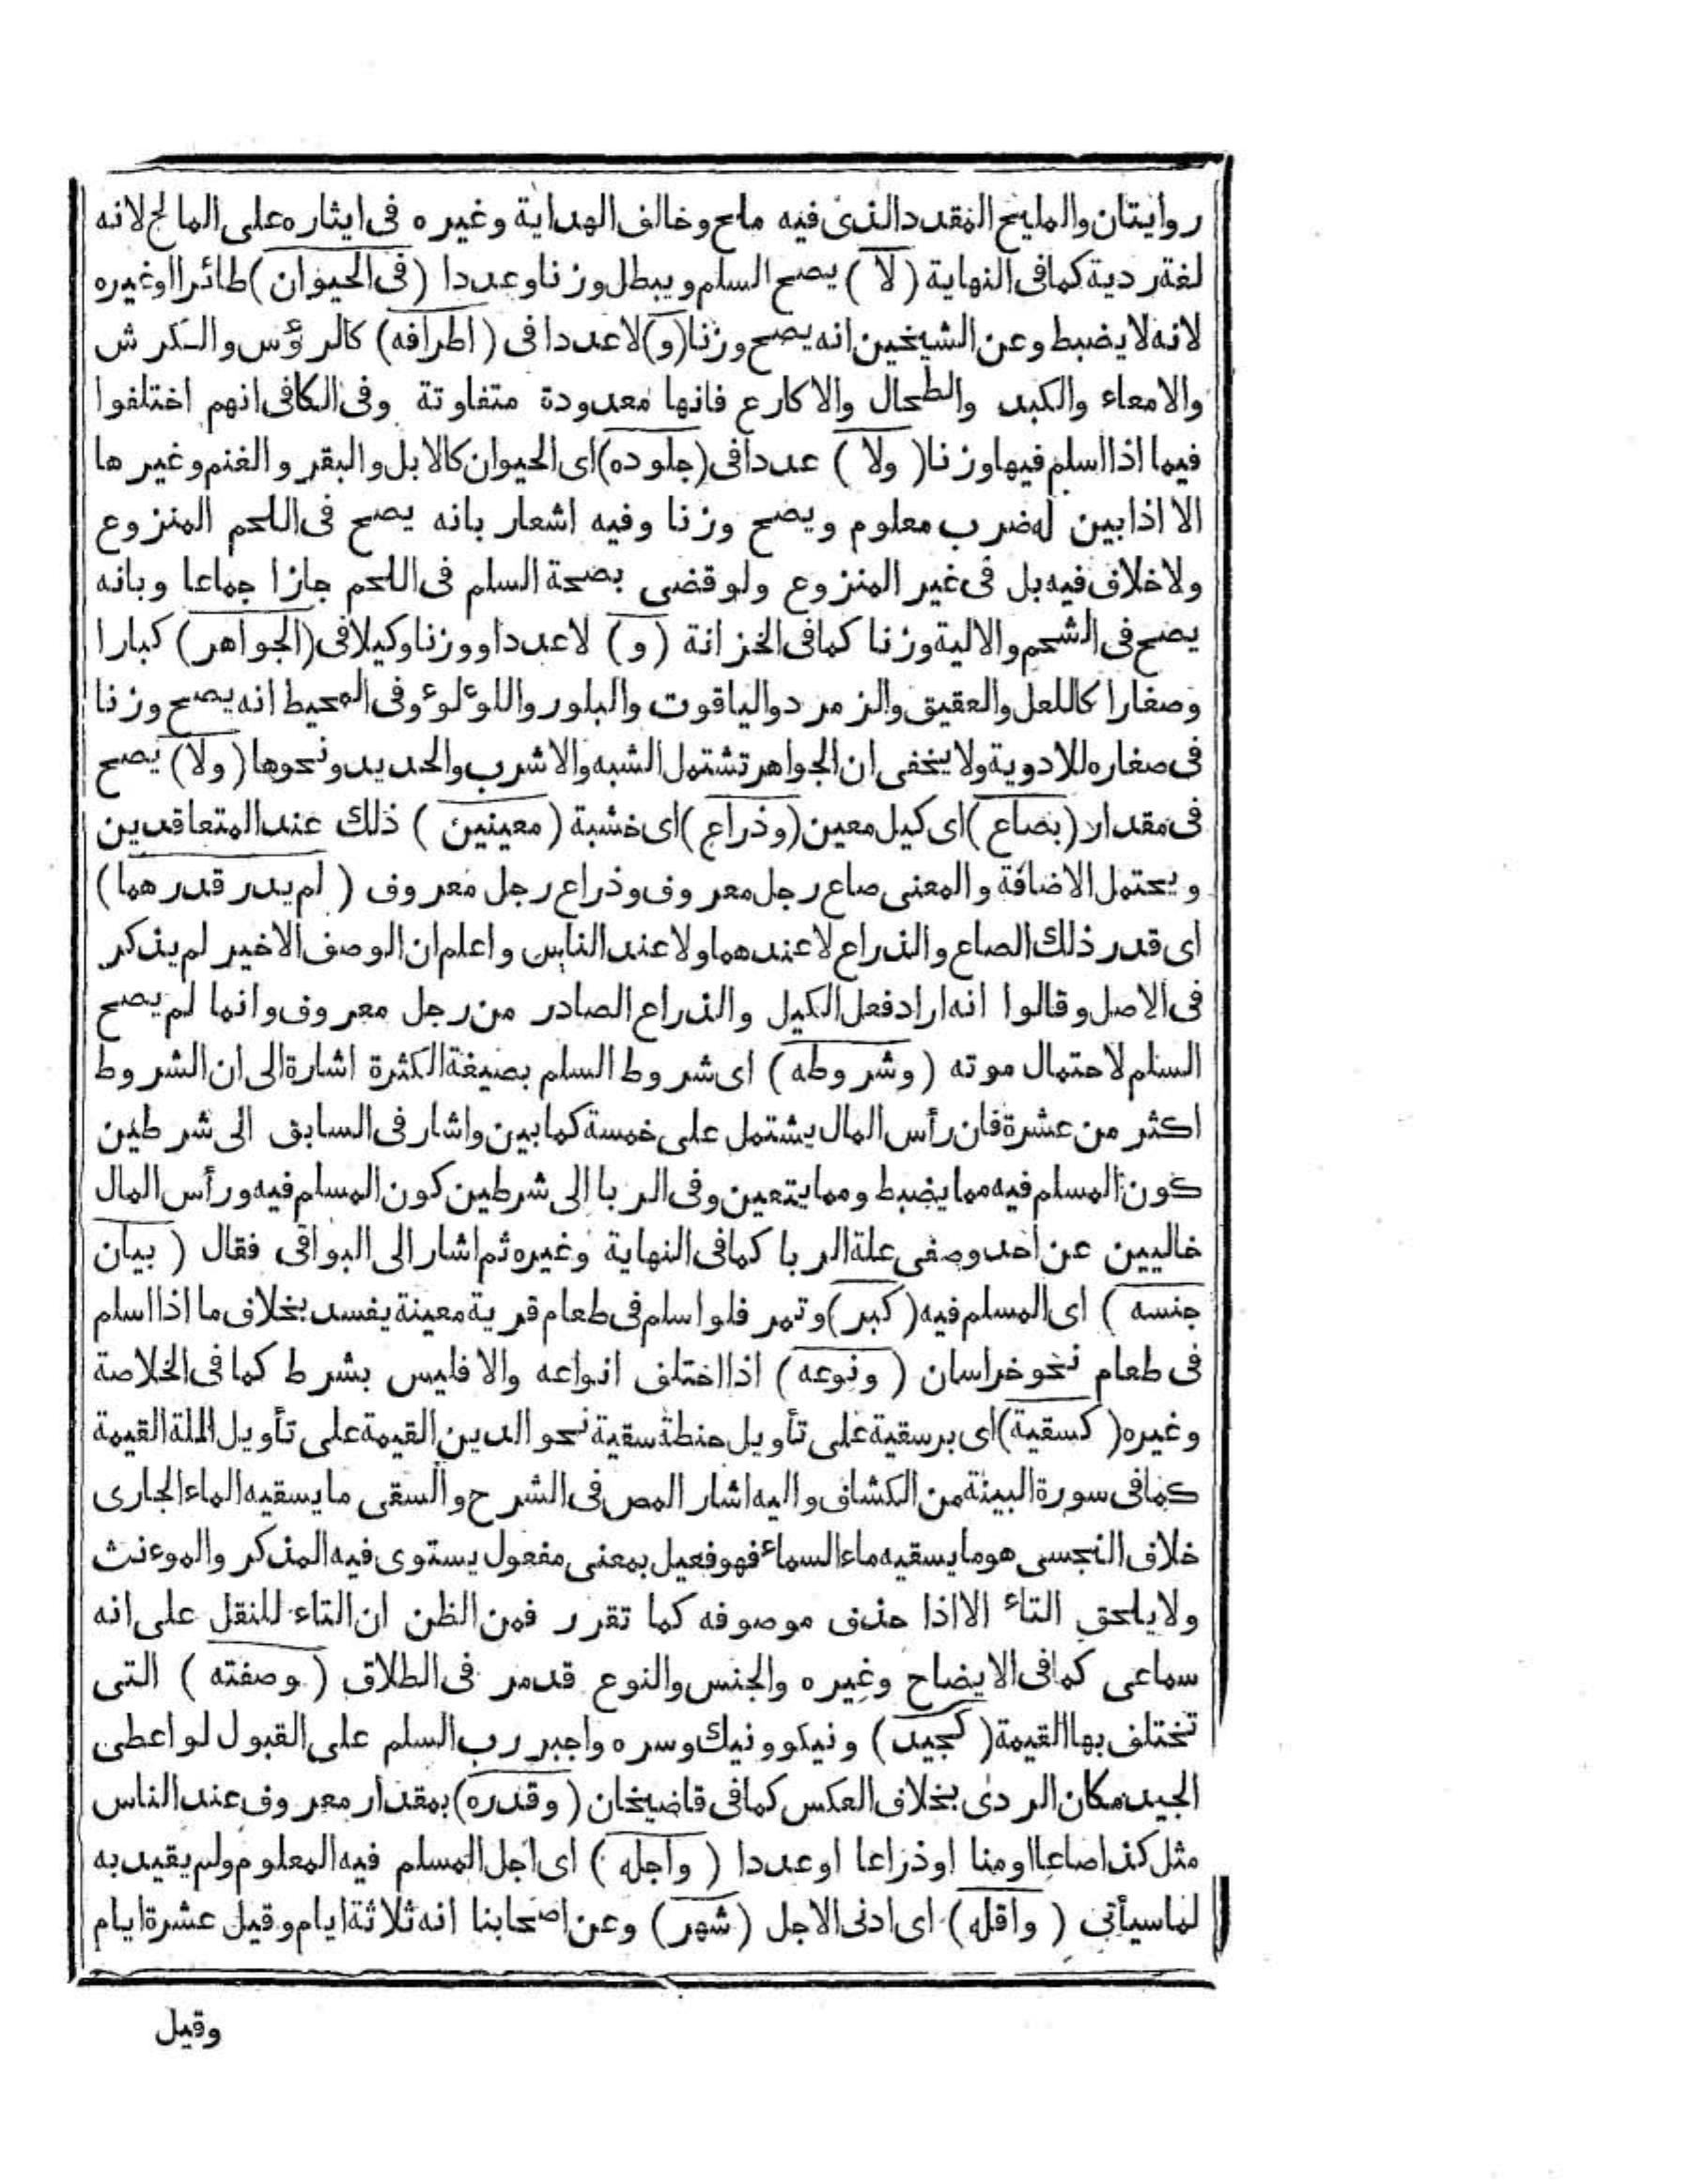 روايتان والمليح المقدد الذى فيه ملح وخالف الهداية وغيره فى ايثاره على المالح لانه
لغة ردية كما فى النهاية (لا) يصح السلم ويبطل وزنا وعددا (فى الحيوان) طائرا اوغيره
لانه لا يضبط وعن الشيخين انه يصح وزنا (و) لا عددا فى (اطرافه) كالرؤس والكرش
والامعاء والكبد والطحال والاكارع فانها معدودة متفاوتة وفى الكافى انهم اختلفوا
فيما اذا اسلم فيها وزنا (ولا) عددا فى (جلوده) اى الحيوان كالابل والبقر والغنم وغيرها
الا اذا بين له ضرب معلوم ويصح وزنا وفيه اشعار بانه يصح فى اللحم المنزوع
ولا خلاف فيه بل فى غير المنزوع ولو قضى بصحة السلم فى اللحم جاز اجماعا وبانه
يصح فى الشحم والالية وزنا كما فى الخزانة (و) لا عددا ووزنا وكيلا فى (الجواهر) كبارا
وصغارا كاللعل والعقيق والزمرد والياقوت والبلور واللوءلوء وفى المحيط انه يصح وزنا
فى صغاره للادوية ولا يخفى ان الجواهر تشتمل الشبه والاشرب والحديد ونحوها (ولا) يصح
فى مقدار (بصاع) اى كيل معين (وذراع) اى خشبة (معينين) ذلك عند المتعاقدين
ويحتمل الاضافة والمعنى صاع رجل معروف وذراع رجل معروف (لم يدر قدرهما)
اى قدر ذلك الصاع والذراع لا عندهما ولا عند الناس واعلم ان الوصف الاخير لم يذكر
فى الاصل وقالوا انه اراد فعل الكيل والذراع الصادر من رجل معروف وانما لم يصح
السلم لاحتمال موته (وشروطه) اى شروط السلم بصيغة الكثرة اشارة الى ان الشروط
اكثر من عشرة فان رأس المال يشتمل على خمسة كما بين واشار فى السابق الى شرطين
كون المسلم فيه مما يضبط ومما يتعين وفى الربا الى شرطين كون المسلم فيه ورأس المال
خاليين عن احد وصفى علة الربا كما فى النهاية وغيره ثم اشار الى البواقى فقال (بيان
جنسه) اى المسلم فيه (كبر) وتمر فلو اسلم فى طعام قرية معينة يفسد بخلاف ما اذا اسلم
فى طعام نحو خراسان (ونوعه) اذا اختلف انواعه والا فليس بشرط كما فى الخلاصة
وغيره (كسقية) اى بر سقية على تأويل حنطة سقية نحو الدين القيمة على تأويل الملة القيمة
كما فى سورة البينة من الكشاف واليه اشار المص فى الشرح والسقى ما يسقيه الماء الجارى
خلاف النجسى هو ما يسقيه ماء السماء فهو فعيل بمعنى مفعول يستوى فيه المذكر والموءنث
ولا يلحق التاء الا اذا حذف موصوفه كما تقرر فمن الظن ان التاء للنقل على انه
سماعى كما فى الايضاح وغيره والجنس والنوع قد مر فى الطلاق (وصفته) التى
تختلف بها القيمة (كجيد) ونيكو ونيك وسره واجبر رب السلم على القبول لو اعطى
الجيد مكان الردى بخلاف العكس كما فى قاضيخان (وقدره) بمقدار معروف عند الناس
مثل كذا صاعا او منا او ذراعا او عددا (واجله) اى اجل المسلم فيه المعلوم ولم يقيد به
لما سيأتى (واقله) اى ادنى الاجل (شهر) وعن اصحابنا انه ثلاثة ايام وقيل عشرة ايام
وقيل